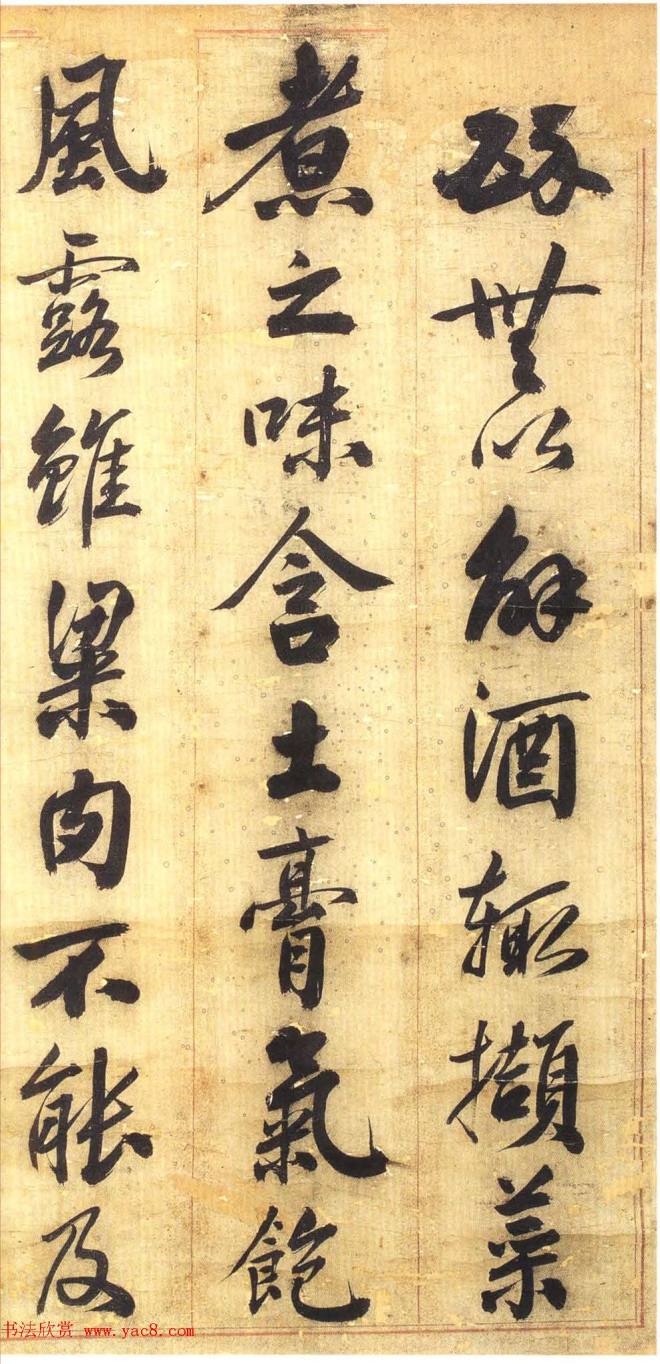 醉無以解酒輒擷菜
煮之味含土膏氣飽
風露雖粱肉不能及
书法欣赏 www.yac8.com